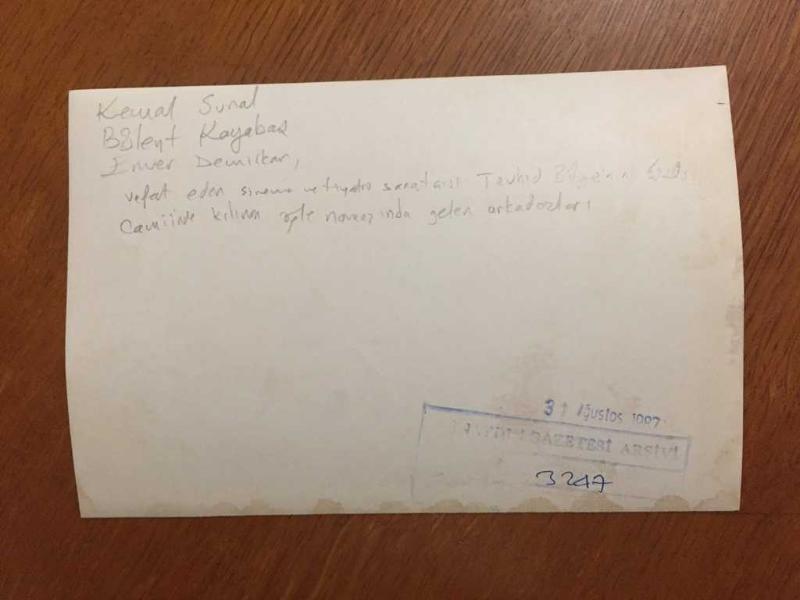 Kemal Sunal
Bülent Kayabaş
Enver Demirkan,
vefat eden sinema ve tiyatro sanatçısı Tevhid Bilge'nin
Camiinde kılınan öğle namazında gelen arkadaşları
31 Ağustos 1987
GAZETESİ ARŞİVİ
3247